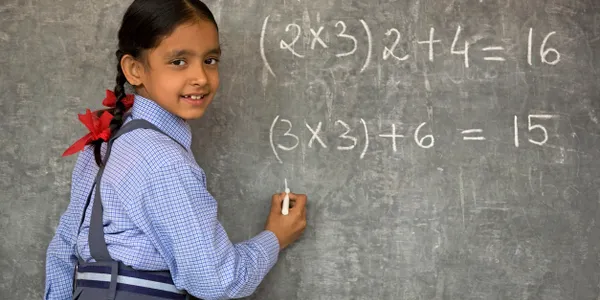 (2×3)2+4=16
(3×3)+6=15